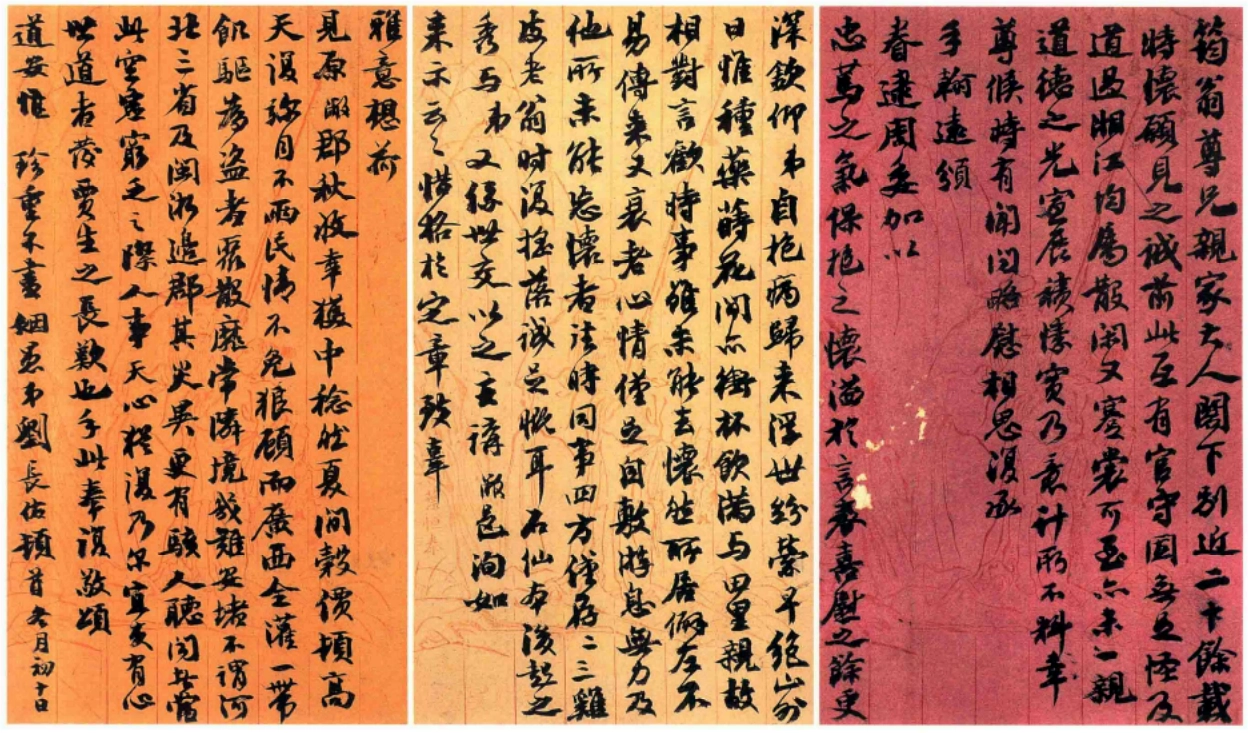 筠翁尊兄親家大人閣下別近二十餘載
時懷願見之誠前此互有官守固無足怪及
道過湘江均屬散閑又蹇裳可至亦未一親
道德之光宣展積愫實乃意計所不料幸
尊候時有聞問略慰相思復承
手翰遠頒
眷逮周至加以
忠篤之氣保抱之懷溢於言表喜慰之餘更
深欽仰弟自抱病歸來浮世紛榮早絕山外
日惟種藥蒔花間亦銜杯飲滿與田里親故
相對言歡時事雖未能去懷然所居僻左不
易傳來又衰老心情僅足自敷游息無力及
他所未能忘懷者詁時同事四方僅存二三雞
皮老翁時復搖落誠足慨耳石仙本後起之
秀與弟又緣世交以之主講敝邑洵如
來示云云惜格於定章致辜
雅意想荷
見原敝郡秋收幸獲中稔然夏間穀價頓高
天復弥月不雨民情不免狼顧而廣西全灌一帶
飢驅為盜者眾散靡常隣境幾難安堵不謂河
北三省及閩浙邊郡其災異更有駭人聽聞者當
此空虛窮乏之際人事天心猶復乃尔宜憂有心
世道者發賈生之長歎也手此奉復敬頌
道安惟 珍重不盡 姻愚弟劉長佑頓首 冬月初十日